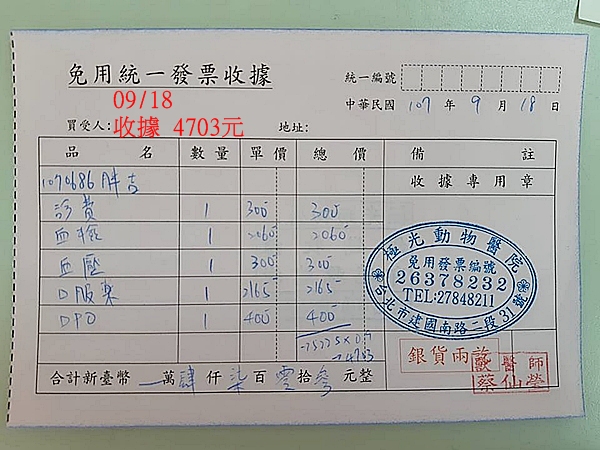 免用統一發票收據
統一編號
09/18
中華民國 107 年 9 月 18 日
買受人: 收據 4703元 地址:
品名 數量 單價 總價 備註
收據專用章
1070686 胖吉
診費 1 300 300
血檢 1 2060 2060
血壓 1 300 300
口服藥 1 2165 2165
DPO 1 400 400
極光動物醫院
免用發票編號
26378232
TEL:27848211
台北市建國南路二段31號
銀貨兩訖
獸醫師
蔡仙瑩
合計新臺幣 萬 肆 仟 柒 百 零 拾 參 元整